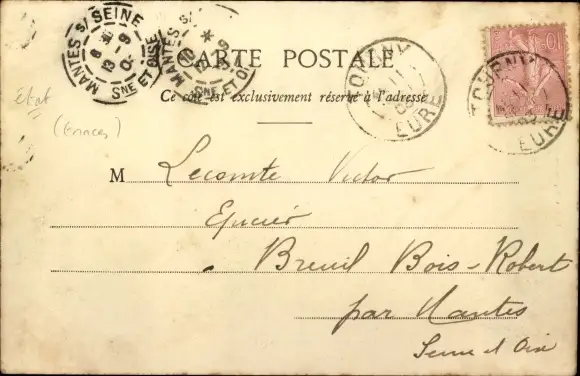 MANTES S/ SEINE
SNE ET OISE
MANTES S/
SNE ET OI
CARTE POSTALE
Ce côté est exclusivement réservé à l'adresse
TOURNY
EURE
TOURNY
EURE
10
état
M Lecomte Victor
Epicier
Breuil Bois-Robert
par Mantes
Seine et Oise